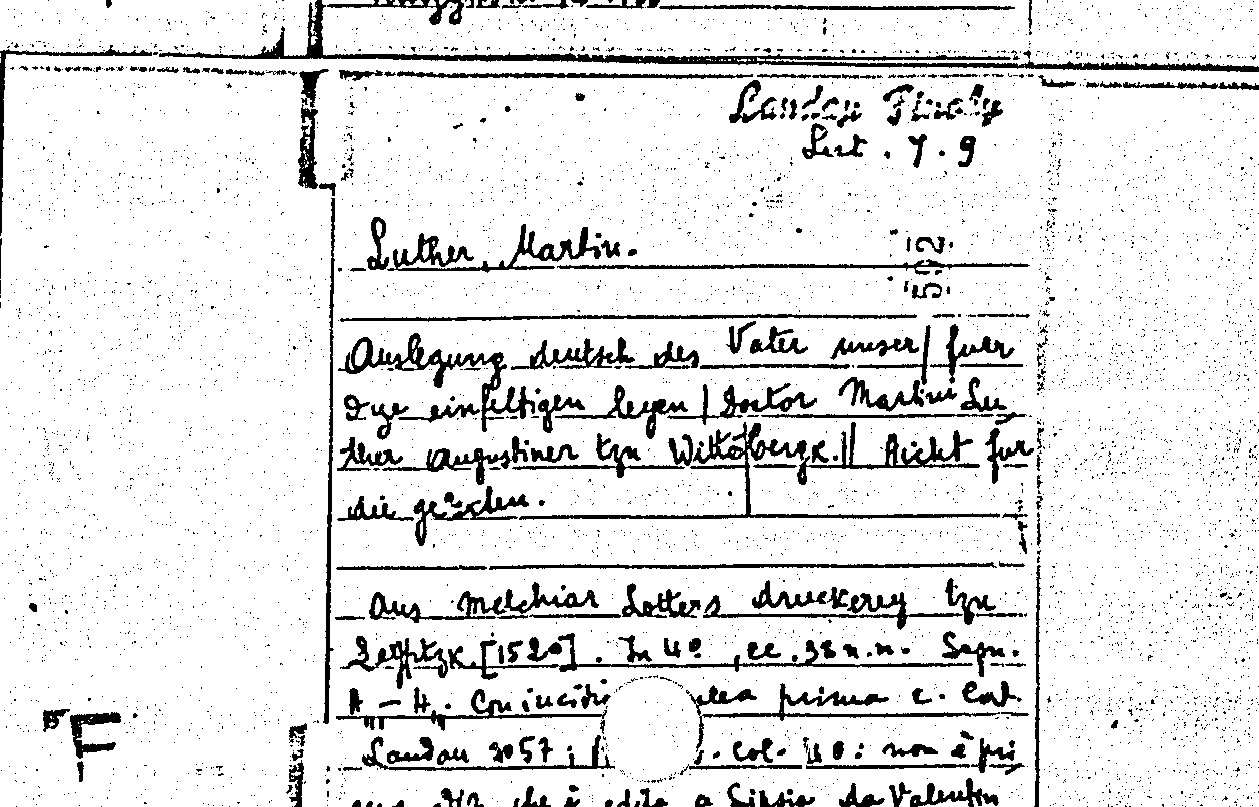 Landau Finaly
Lut. 7. 9
Luther, Martin.
502
Auslegung deutsch des Vater unser/ fuer
dye einfeltigen leyen / Doctor Martini Lu
ther Augustiner tzu Wittēbergk. || Nicht fur
die
Aus Melchiar Lotters druckerey tzu
[1520]. In 4º, cc. 38 n.n. Segn.
A - H. Con prima e. Cat
Landau 2057; col. 40: non è pri
che è edita a Lipsia da Valentin
F